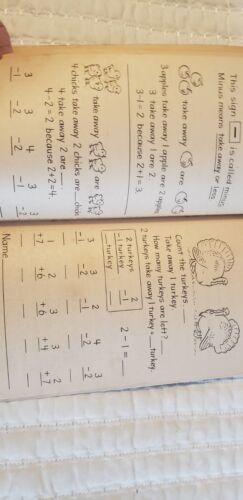 This sign [−] is called minus.
Minus means take away or less
take away are
3 apples take away 1 apple are 2 apples
3 take away 1 are 2.
3-1=2 because 2+1=3.
take away are
4 chicks take away 2 chicks are chicks
4 take away 2 are
4-2=2 because 2+2=4.
3 3 4 3 3
-1 -2 -2 -1 -2
Count the turkeys.
Take away 1 turkey.
How many turkeys are left?
2 turkeys take away 1 turkey = turkey.
2 turkeys 2
-1 turkey -1 2-1=
turkey
3 3 2 4 3
-1 -2 -1 -2 -2
1 2 3 3 2
+7 +6 +6 +4 +7
Name